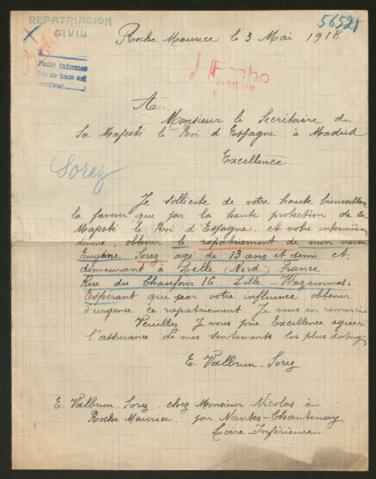 REPATRIACIÓN
CIVIL
56521
Roche Maurice le 3 Mai 1918
Pedir informes
A.
Monsieur le Secrétaire de
Sa Majesté le Roi d'Espagne à Madrid
Excellence
Sorez
Je sollicite de votre haute bienveillance
la faveur que par la haute protection de Sa
Majesté le Roi d'Espagne et votre intermédiaire
obtenir le rapatriement de mon neveu
Eugène Sorez agé de 13 ans et demi et
demeurant à Lille (Nord) France
Rue du Chaufour 16. Lille-Wazemmes.
Espérant que par votre influence obtenir
d'urgence ce rapatriement. Je vous en remercie
Veuillez Je vous prie Excellence agréer
l'assurance de mes sentiments les plus distingués
E. Valbrun-Sorez
E. Valbrun-Sorez chez Monsieur Nicolas à
Roche Maurice par Nantes-Chantenay
Loire-Inférieure.